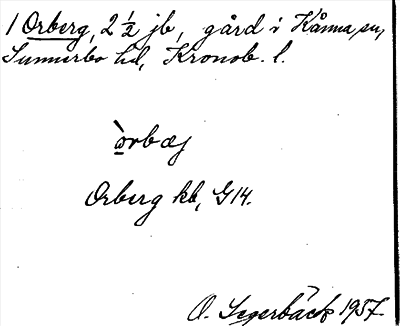 1 Orberg, 2 ½ jb, gård i Kånna sn,
Sunnerbo hd, Kronob. l.
òrbæj
Orberg kb, G14.
O. Segerbäck 1937.